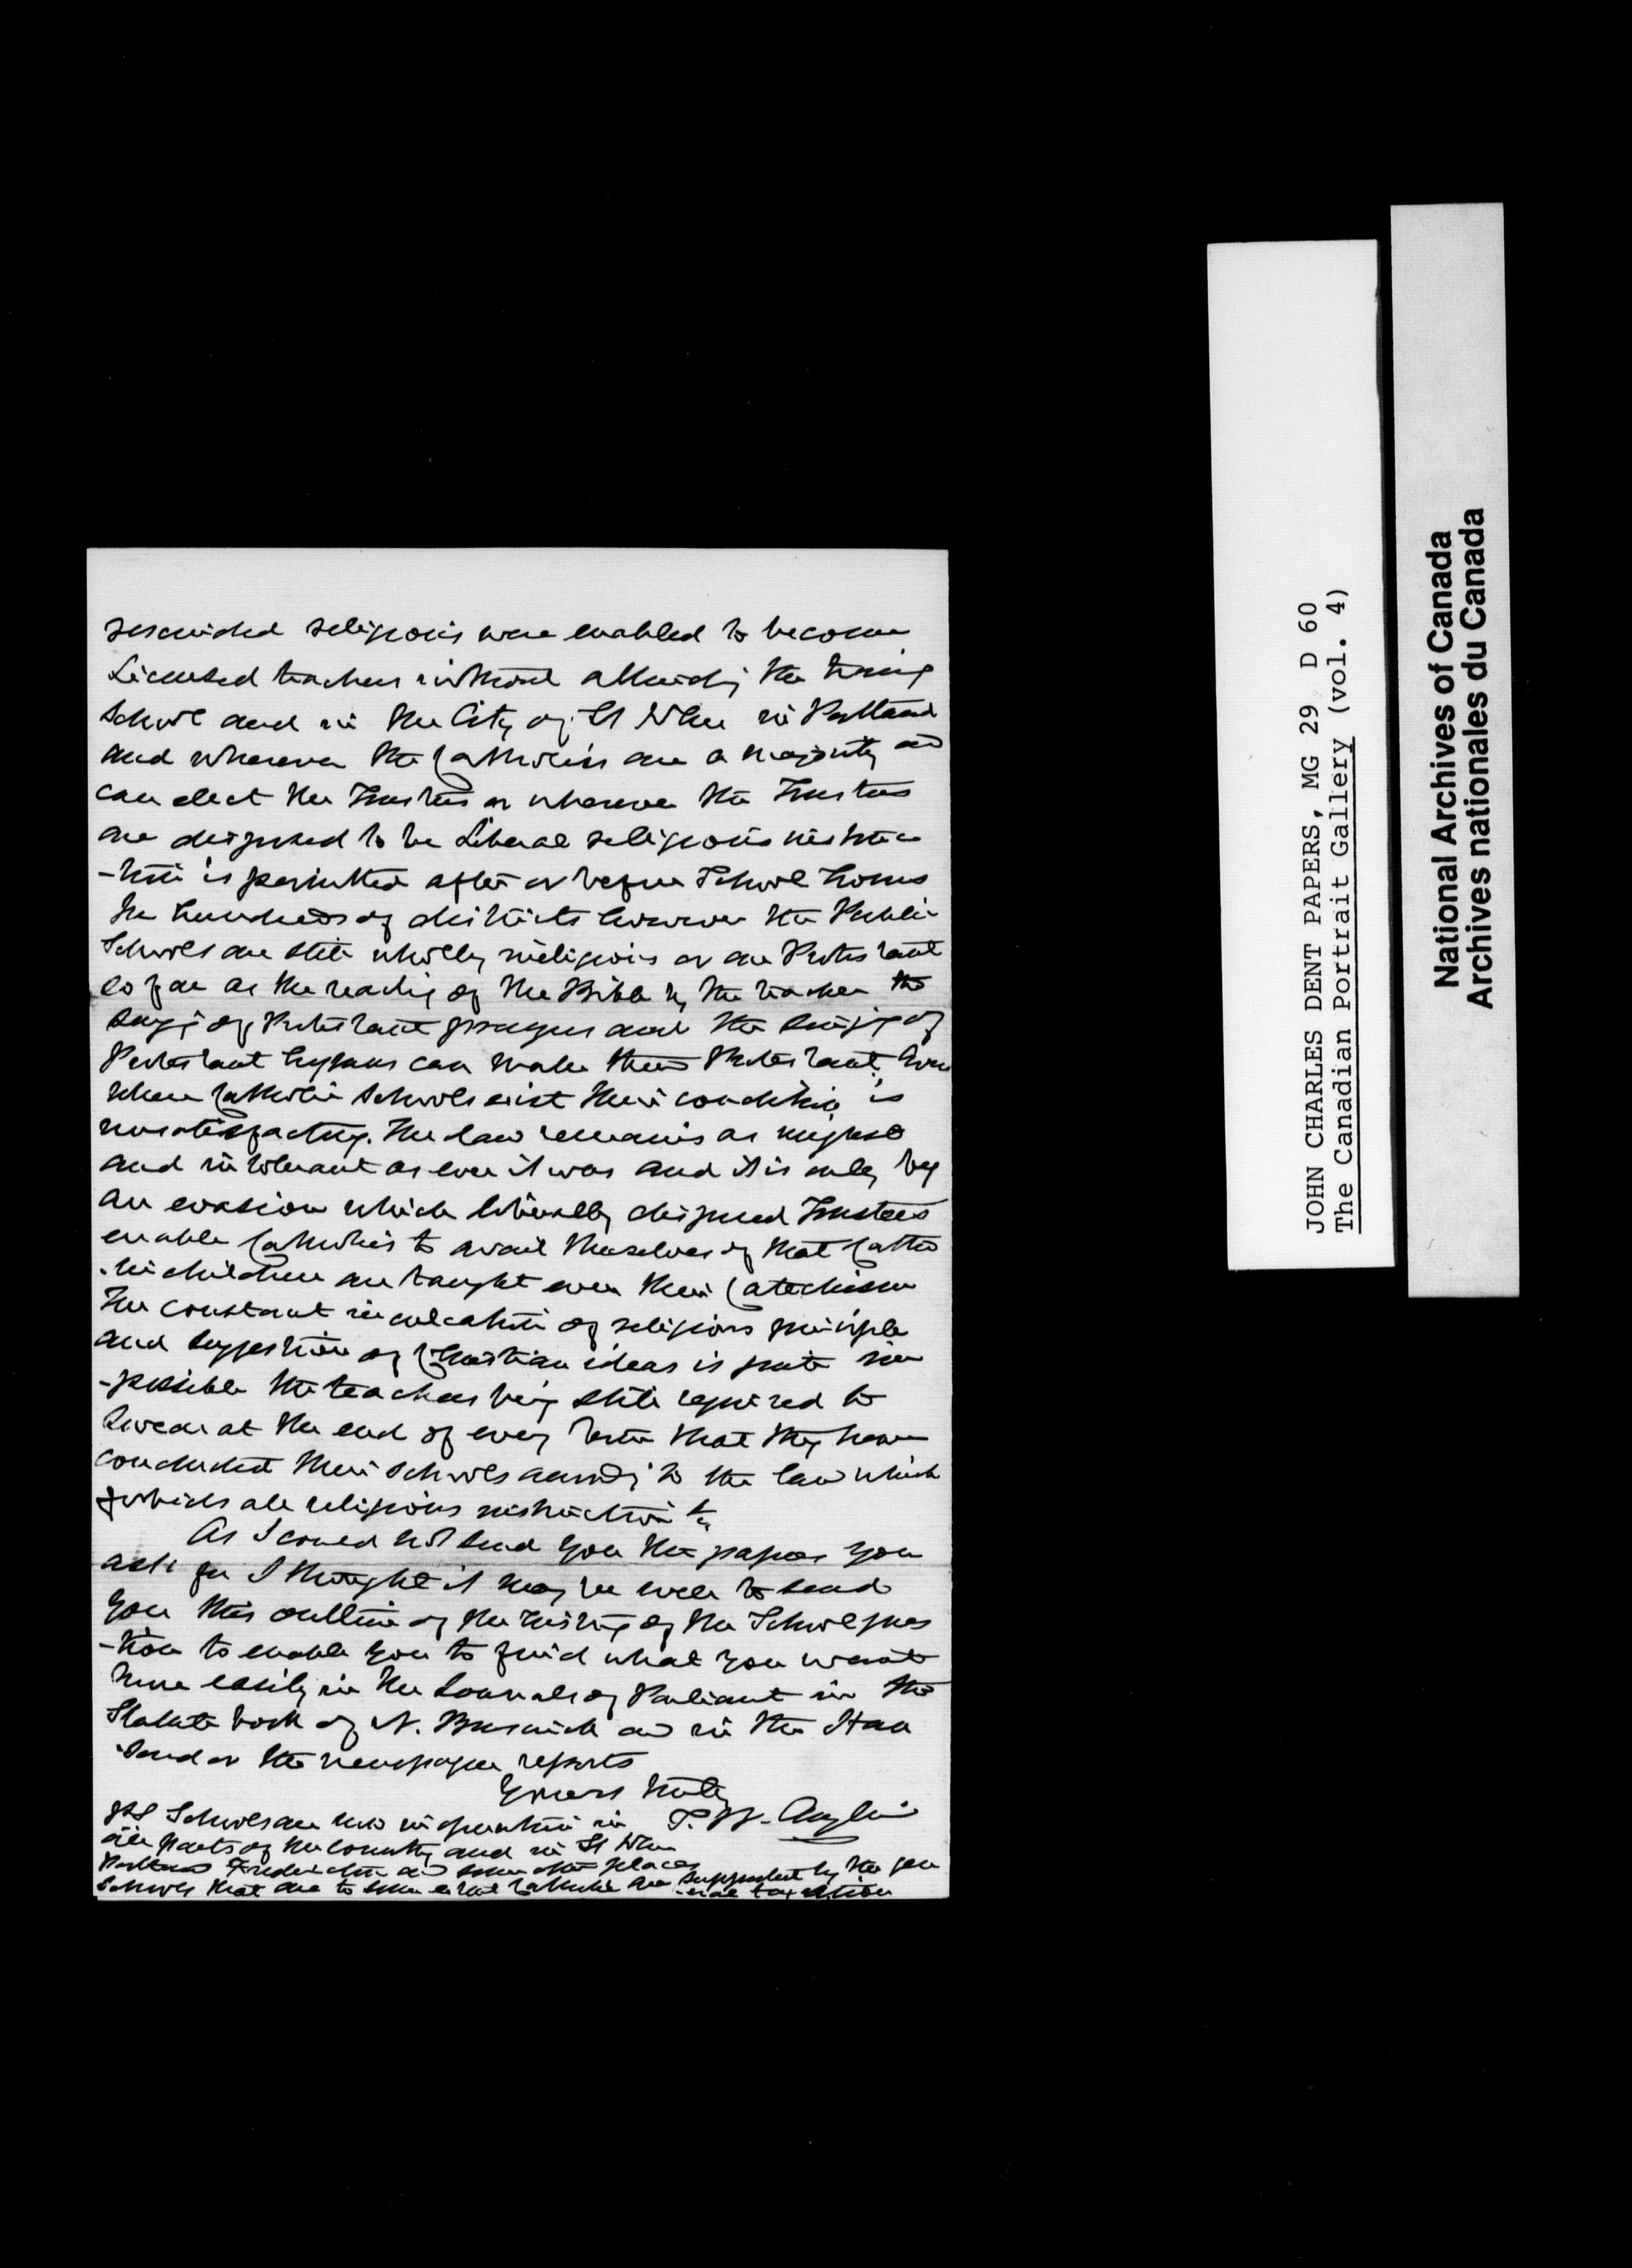 rescinded religious were enabled to become
Licensed teachers without attending the traing
School and in the City of St John in Portland
and wherever the Catholics are a majority and
can elect the Trustees or wherever the Trustees
are disposed to be Liberal religious instruc
-tion is permitted after or before School hours
In hundreds of districts however the Public
Schools are still wholly irreligious or are Protestant
so far as the reading of the Bible by the teacher the
sayg of Protestant prayers and the singing of
Protestant hymns can make them Protestant. Even
where Catholic Schools exist their condition is
unsatisfactory. The law remains as unjust
and intolerant as ever it was and it is only by
an evasion which liberally disposed Trustees
enable Catholics to avail themselves of that Catho
-lic children are taught even their Catechism
The constant inculcation of religious principle
and suggestion of Christian ideas is quite im
-possible the teachers being still required to
swear at the end of every term that they have
conducted their schools accordg to the law which
forbids all religious instruction &c
As I could not send you the papers you
ask for I thought it may be well to send
you this outline of the history of the School ques
-tion to enable you to find what you want
more easily in the Journals of Parliament in the
Statute book of N. Brunswick and in the Han
-sard or the newspaper reports
Yours truly
T. W. Anglin
PS Schools are now in operation in
all parts of the country and in St John
Portland Fredericton and some other places
Schools that are to some extent Catholic are supported by the gen
-eral taxation
JOHN CHARLES DENT PAPERS, MG 29 D 60
The Canadian Portrait Gallery (vol. 4)
National Archives of Canada
Archives nationales du Canada